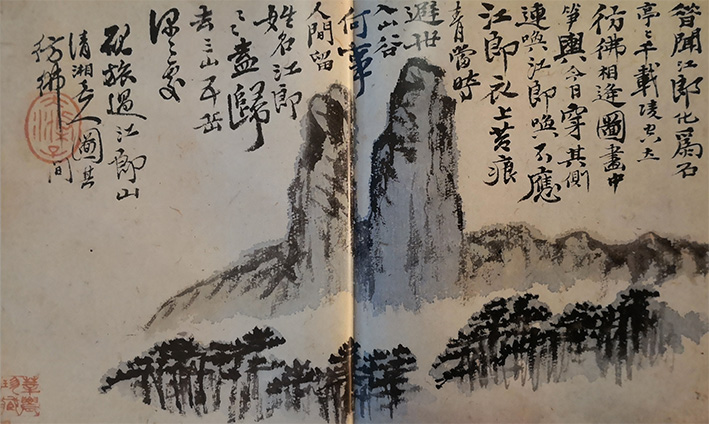 曾聞江郎化爲石
亭々千載陵空立
彷彿相逢圖畫中
筍輿今日穿其側
連喚江郎喚不應
江郎衣上苔痕
青當時
避世
入山谷
何事
人間留
姓名江郎
々々盍歸
去三山五岳
深々處
硯旅過江郎山
清湘老人圖其
彷彿間